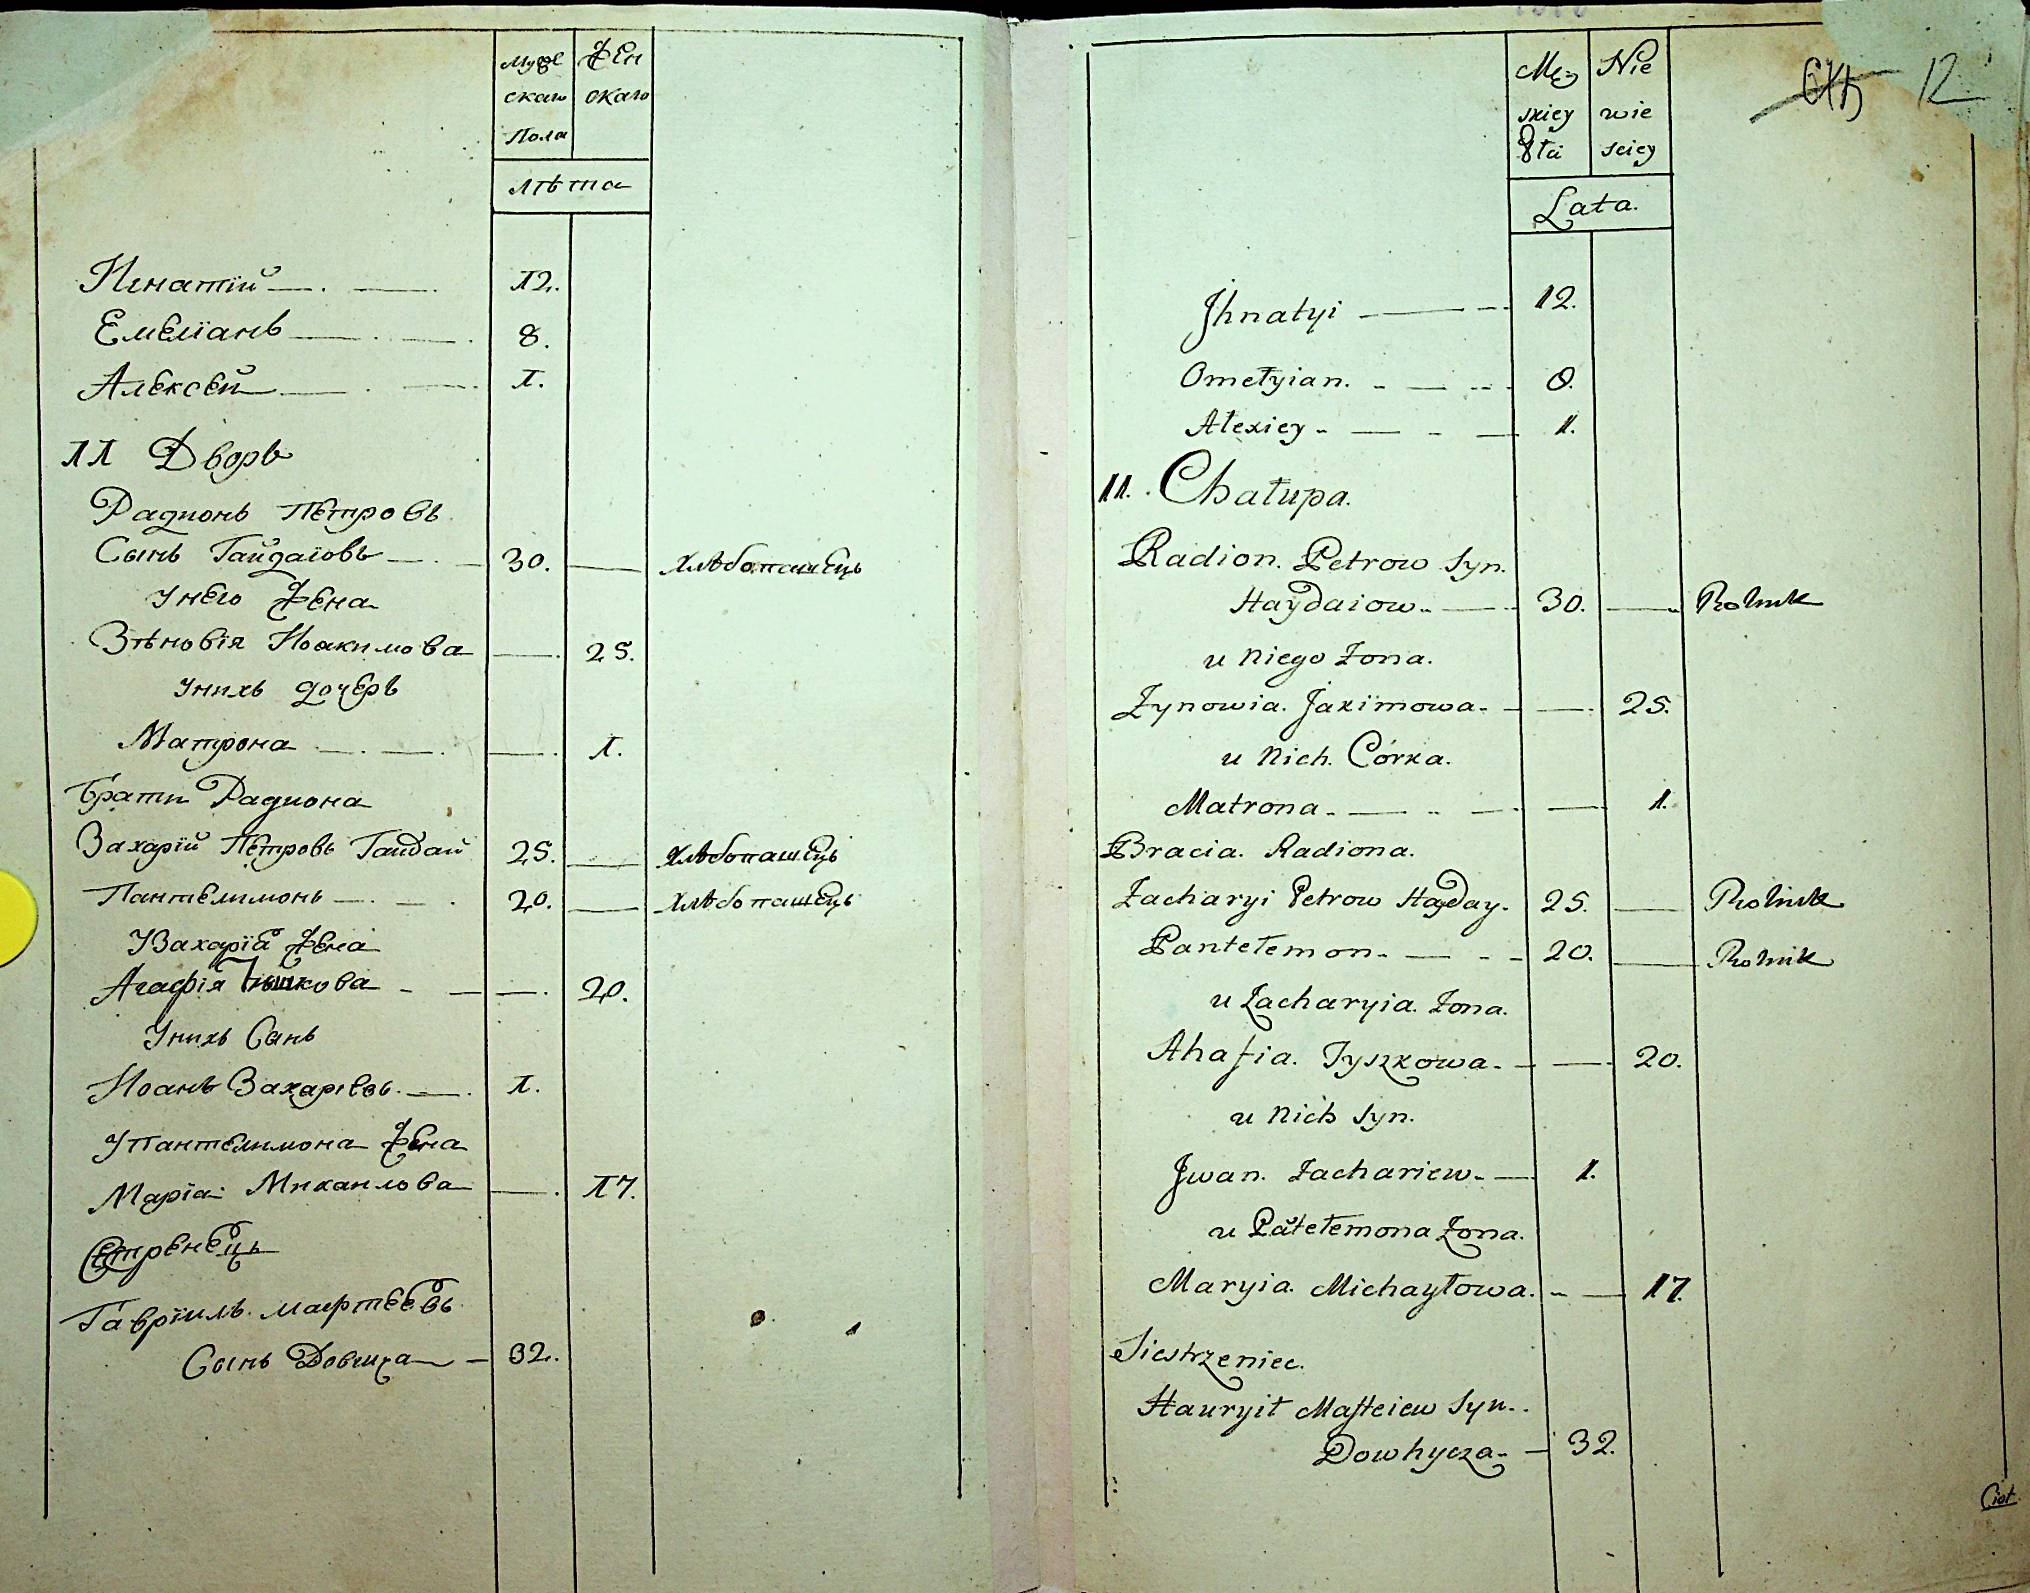 Мужескаго Пола
Женскаго
лѣта
Игнатїй 12.
Емелїанъ 8.
Алексей 1.
11 Дворъ
Радионъ Петровъ
Сынъ Гайдаіовъ 30. Хлѣбопашець
Унего Жена
Зѣновїя Иоакимова 25.
Унихъ дочерь
Матрона 1.
Брати Радиона
Захарїй Петровъ Гайдай 25. Хлѣбопашець
Пантелимонъ 20. Хлѣбопашець
УЗахарїа Жена
Агафїя Тышкова 20.
Унихъ Сынъ
Иоанъ Захарієвъ 1.
Упантелимона Жена
Марїа Михаилова 17.
Сестренець
Гаврїилъ мафтеевъ
Сынъ Довгича 32.
Męzskiey Płci
Niewiesciey
Lata.
12
Jhnatyi 12.
Omełyian. 8.
Alexiey 1.
11. Chałupa.
Radion. Petrow syn.
Haydaiow 30. Rolnik
u niego Żona.
Zynowia. Jakimowa 25.
u nich. Córka.
Matrona 1.
Bracia. Radiona.
Zacharyi Petrow Hayday. 25. Rolnik
Pantełemon 20. Rolnik
u Zacharyia. Żona.
Ahafia. Tyszkowa 20.
u nich syn.
Jwan. Zachariew 1.
u Pātełemona Żona.
Maryia. Michayłowa. 17.
Siestrzeniec.
Hauryił Mafteiew syn.
Dowhycza 32.